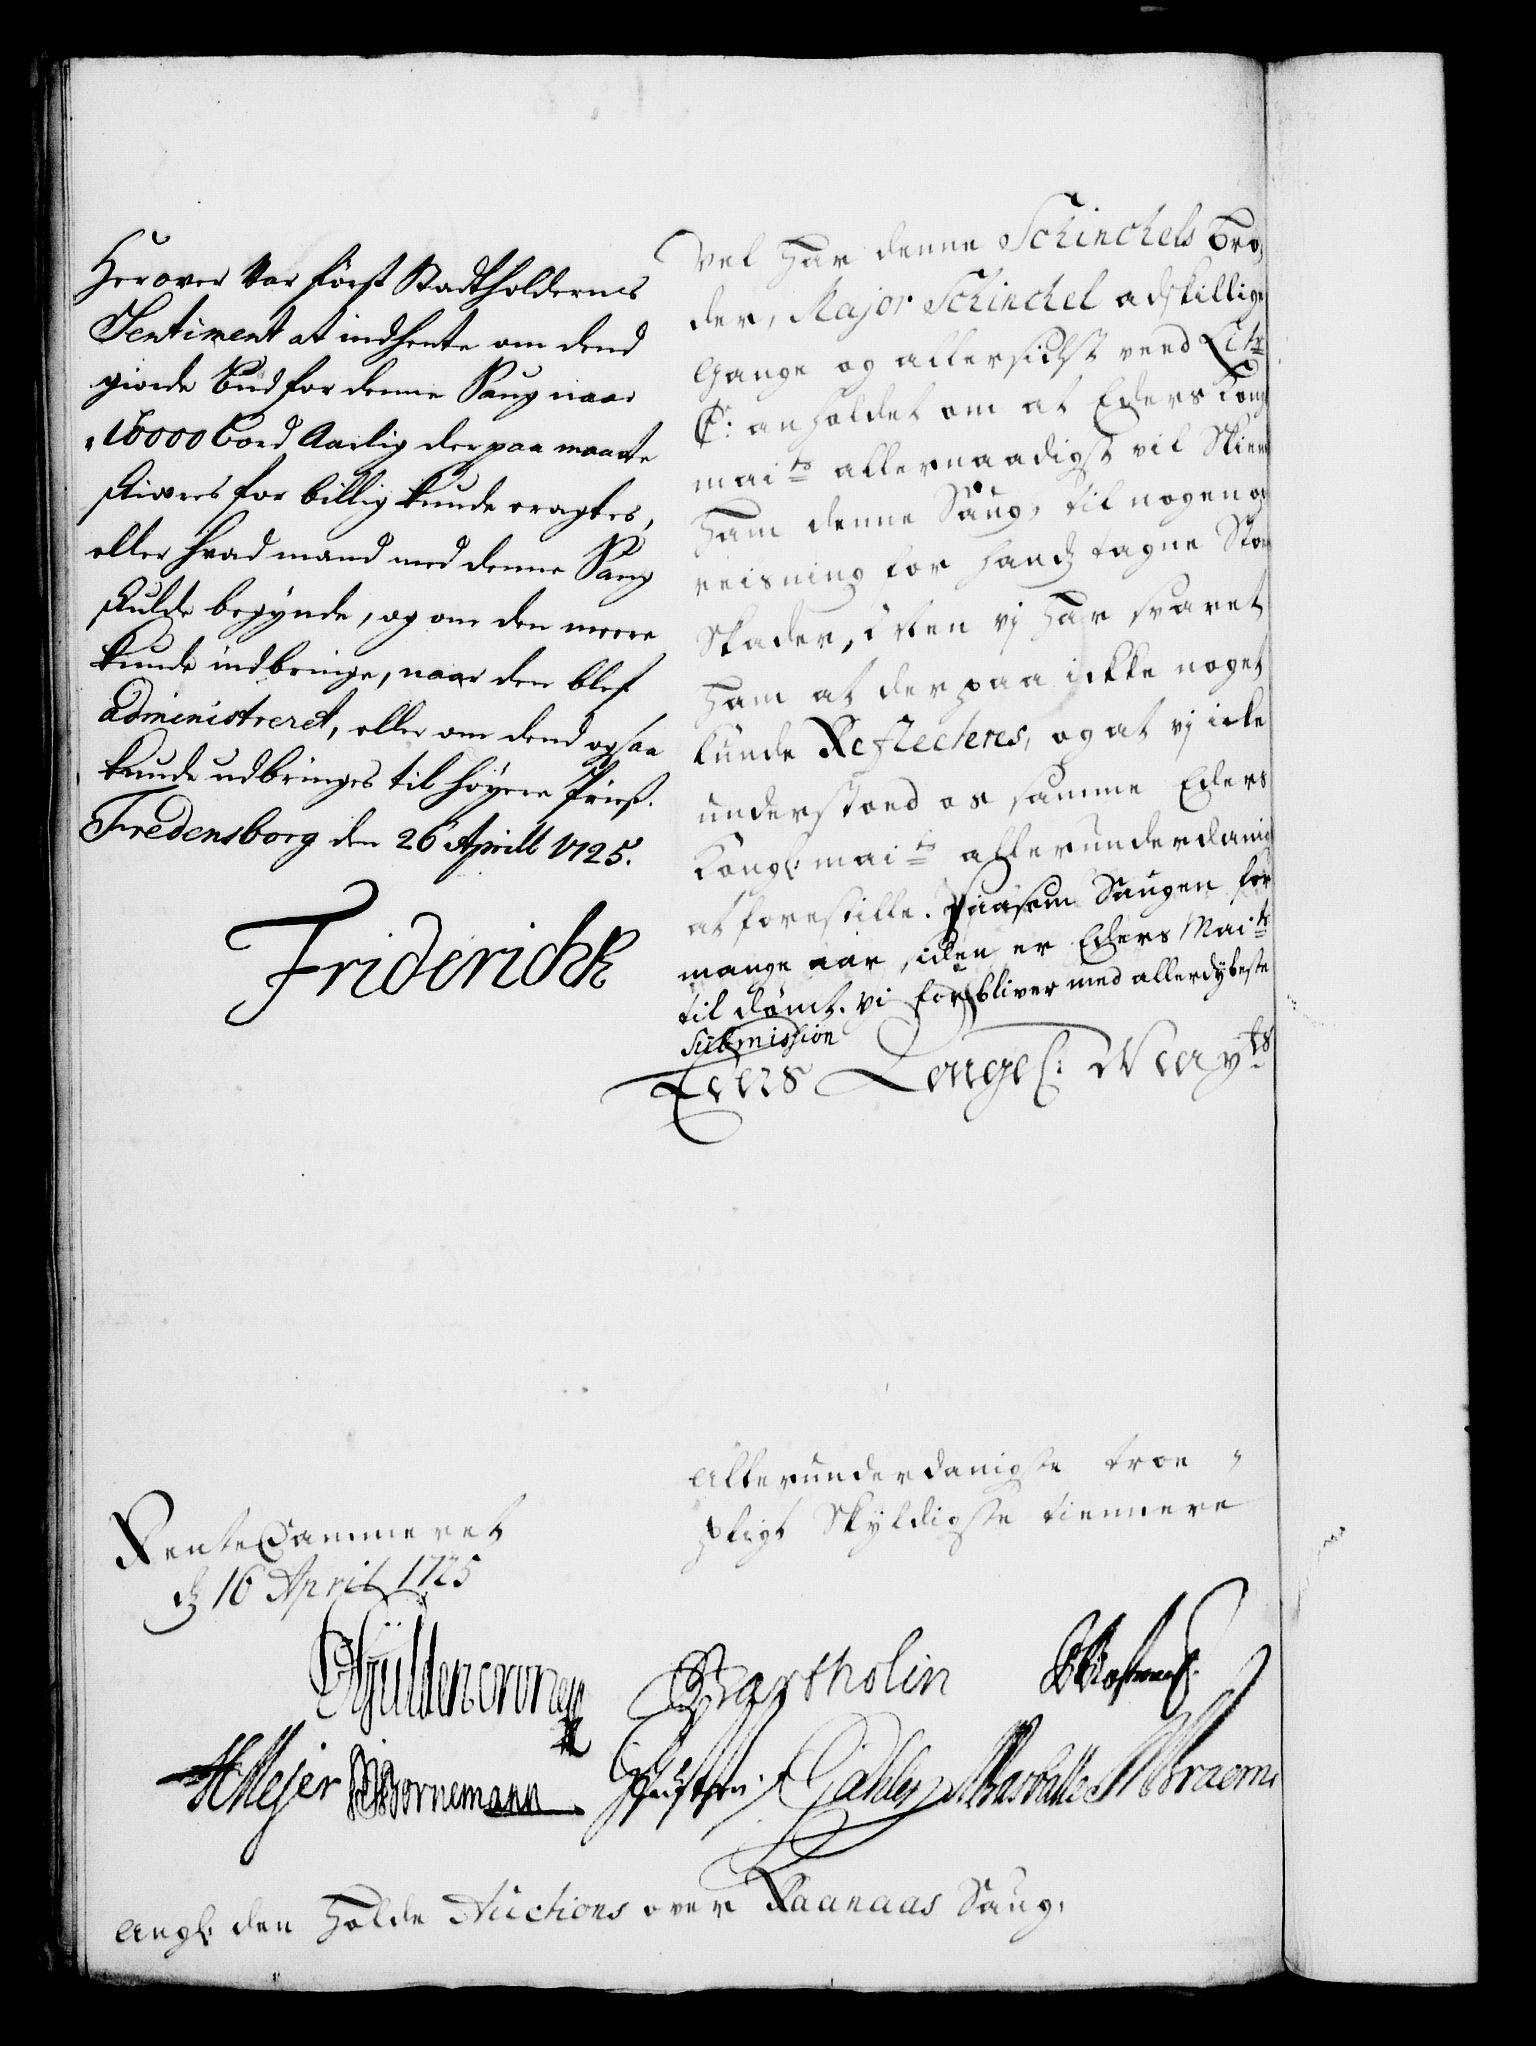 Herover var først Stadtholdernes
Sentiment at indhente om dend
giorde Bud for denne Saug naar
16000 bord Aarlig derpaa maatte
skiæres for billig kunde eragtes,
eller hvad mand med denne Saug
skulde begynde, og om den meere
kunde indbringe, naar den blef
administreret, eller om dend ogsaa
kunde udbringes til høyere Priiß.
Fredensborg den 26 Aprill 1725.
FriderichR
vel har denne Schinchels Bro,
der, Major Schinckel adskillige
Gange og allersidst ved
anholdet om at Eders Kong
mai.ts allernaadigst vil Skien
ham denne Saug, til nogen op
reisning for hans tagne Stor
Skader, uden vj har svaret
ham at derpaa ickke noget
kunde Reflecteres, og at vj icke
understoed os samme Eders
Kongl: mai.ts allerunderdanig
at forestille. Saasom Saugen for
mange aar siden er Eders Mai.ts
til dømt. Vi forbliver med allerdybeste
Submission
Eders Kongel: May.ts
Allerunderdanigste troe
pligt Skyldigste tiennere
RenteCammeret
d 16 April 1725
Güldencrone
Bartholin
HMejer Bornemann
Angl: den holde Auctions over Raanaas Saug.